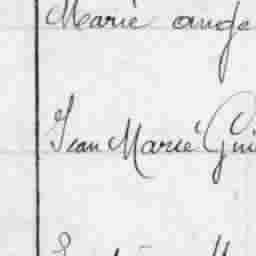 Marie ange
Jean Marie Gui